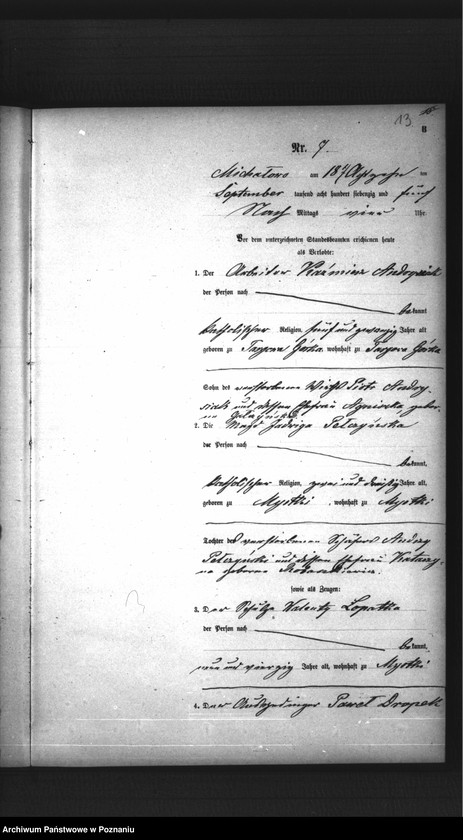 13
8
Nr. 7
Michałowo am 18 Achtzehn ten
September tausend acht hundert siebenzig und fünf
Nach Mittags vier Uhr.
Vor dem unterzeichneten Standesbeamten erschienen heute
als Verlobte:
1. Der Arbeiter Kaźmierz
der Person nach
bekannt
katholischer Religion, fünf und zwanzig Jahre alt
geboren zu Górka wohnhaft zu Górka
Sohn des verstorbenen Wirth Piotr
und dessen Ehefrau Agnieszka gebor-
ne
2. Die Magd Jadwiga Pełczyńska
der Person nach
bekannt,
katholischer Religion, zwei und dreißig Jahre alt,
geboren zu Mystki, wohnhaft zu Mystki
Tochter des verstorbenen Schäfers Andrzej
Pełczyński und dessen Ehefrau Katarzy-
na geborene
sowie als Zeugen:
3. Der Schulze Valenty Łopatka
der Person nach
bekannt,
neun und vierzig Jahre alt, wohnhaft zu Mystki
4. Der Paweł Dropek
Archiwum Państwowe w Poznaniu